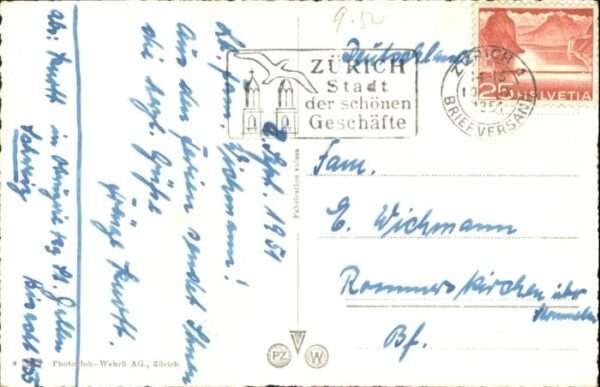 9.52
Deutschland
ZÜRICH
Stadt
der schönen
Geschäfte
ZÜRICH 1
1951
BRIEFVERSAND
25 HELVETIA
2. Sept. 1951
Lb. Fam. Wichmann!
Aus den Ferien sendet Ihnen
die herzl. Grüße
Abs.
in
St. Gallen
Schweiz
Fam.
E. Wichmann
Rommerskirchen über
Bf.
Fabrication suisse
PZ W
Photo Joh. Wehrli AG., Zürich